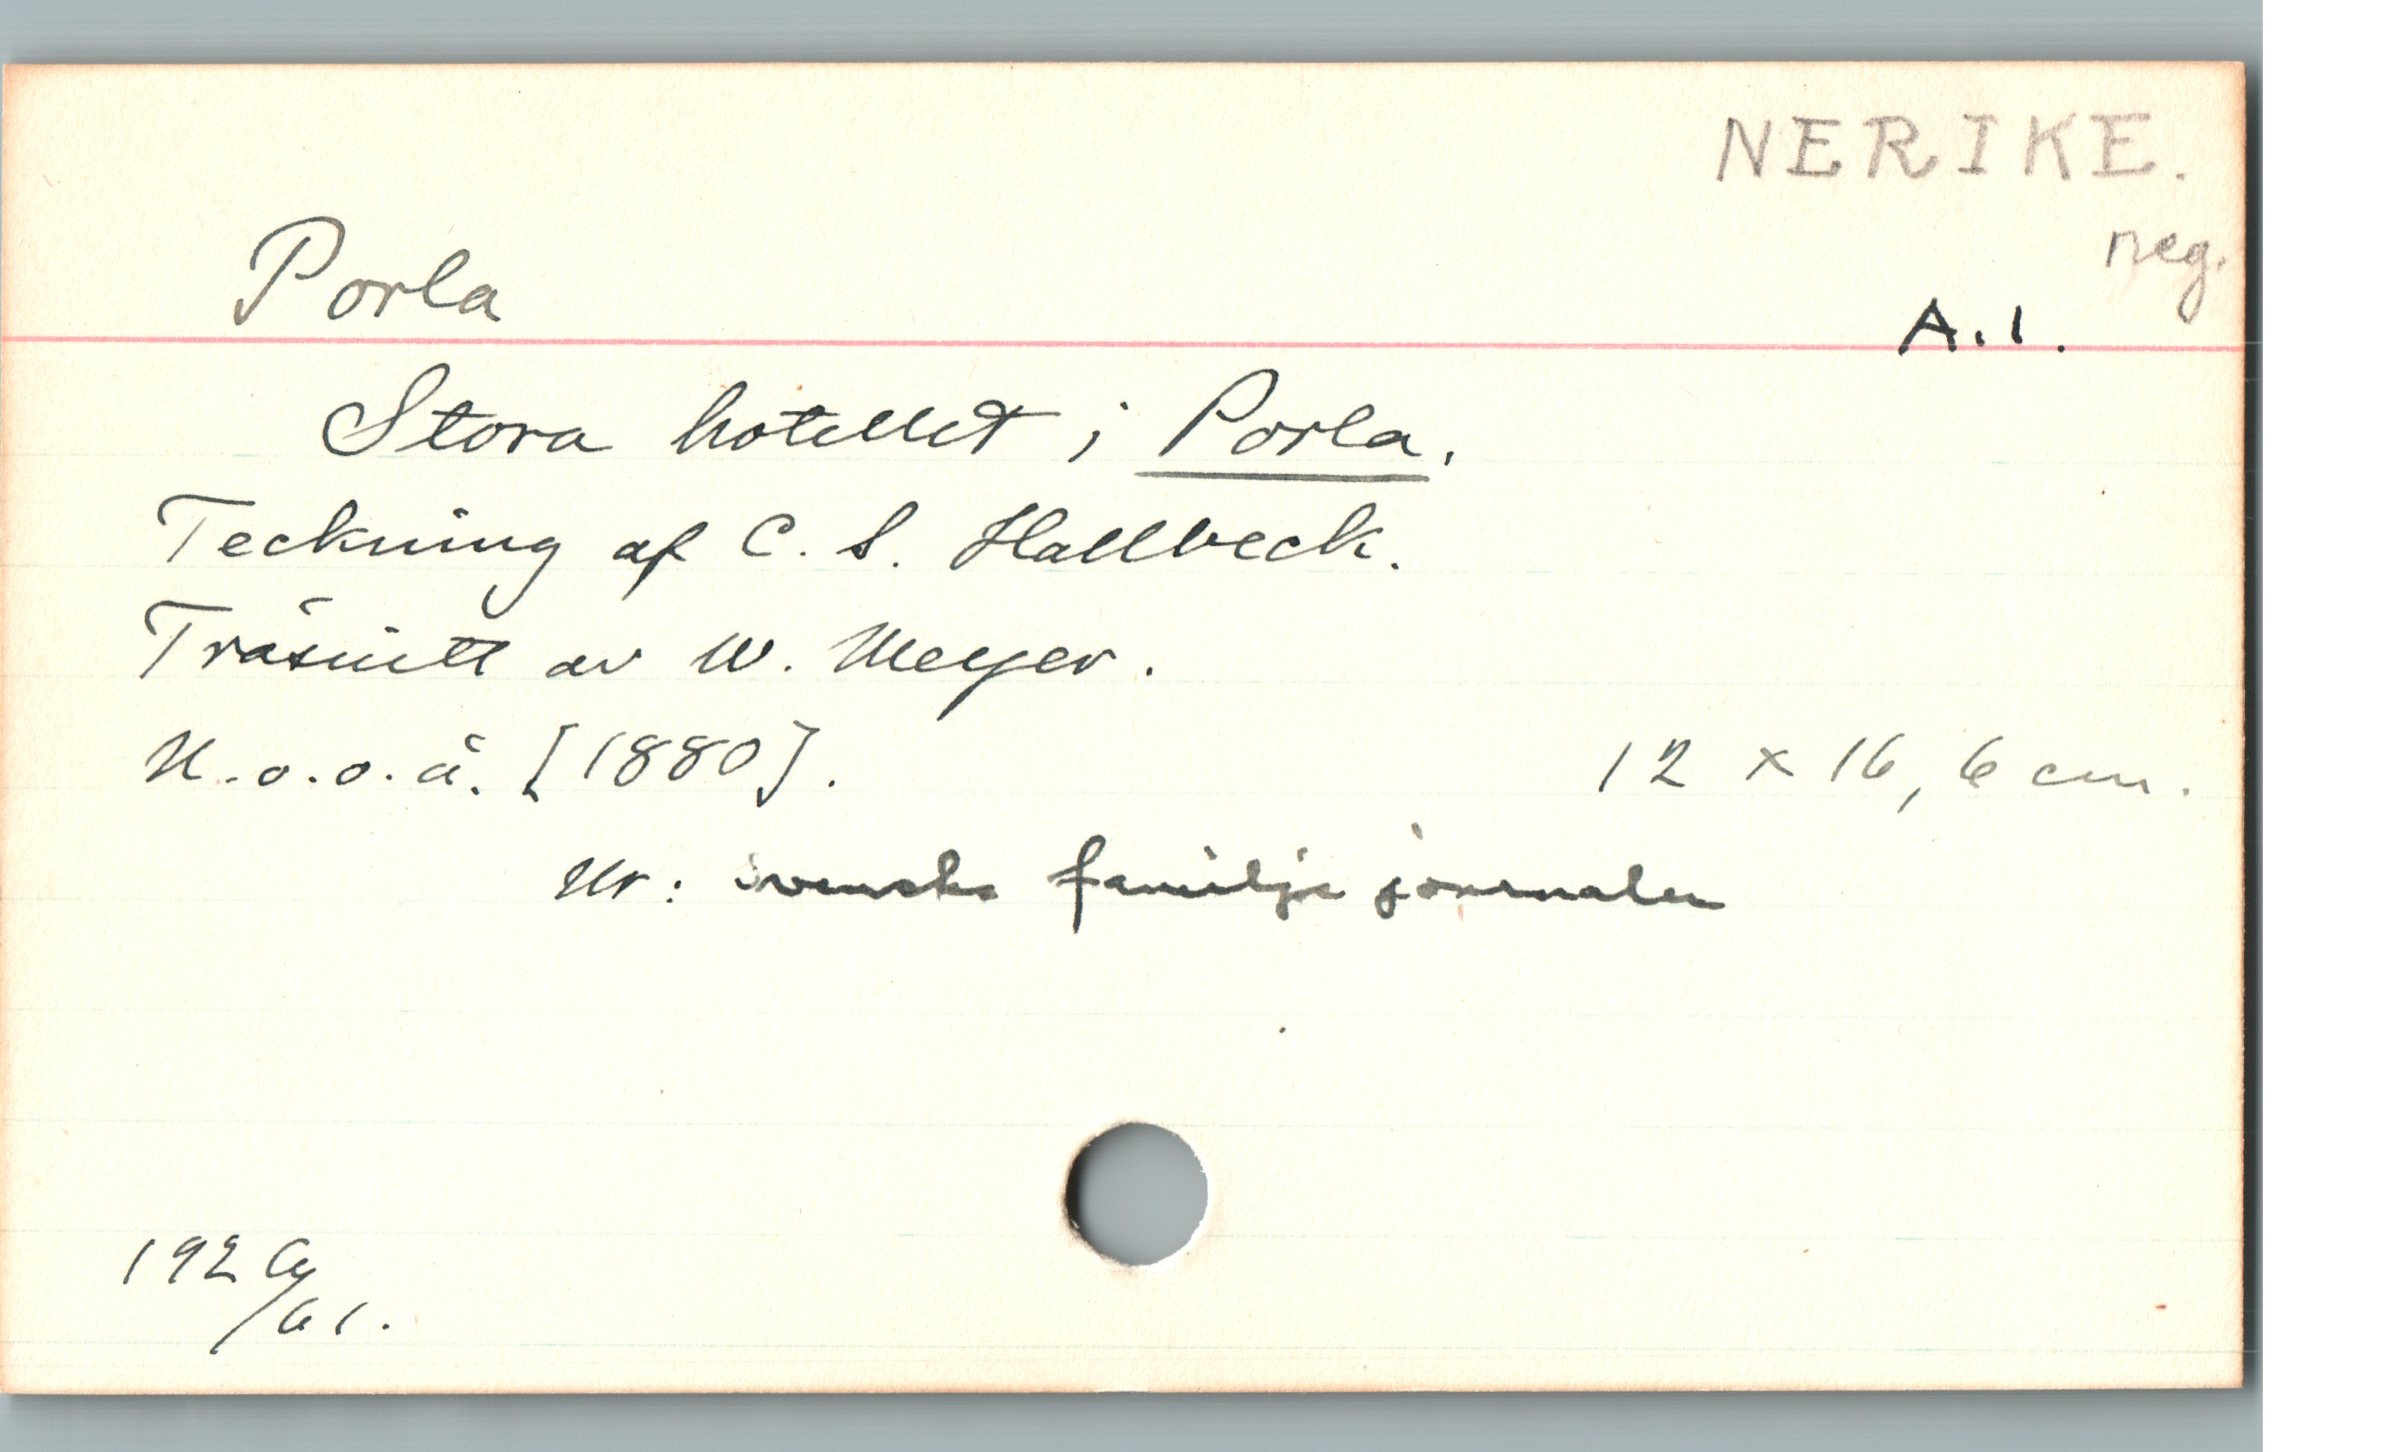 NERIKE.
neg.
Porla
A.1.
Stora hotellet i Porla.
Teckning af C. S. Hallbeck.
Träsnitt av W. Meyer.
U.o.o.å. [1880].
12 x 16,6 cm.
Ur: Svenska familje journalen
192
/61.